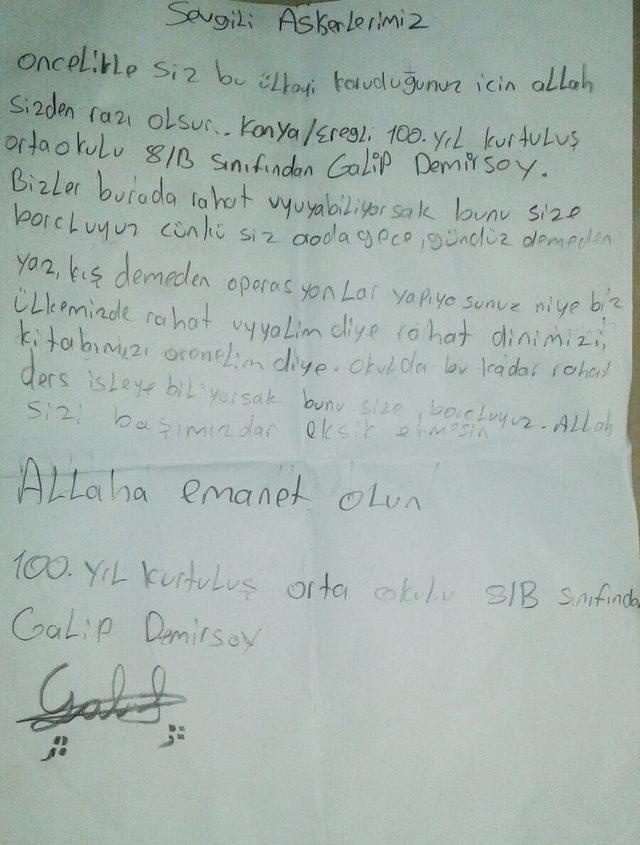 Sevgili Askerlerimiz
öncelikle siz bu ülkeyi koruduğunuz için allah
sizden razı olsun.. Konya/Ereğli 100. yıl kurtuluş
ortaokulu 8/B sınıfından Galip Demirsoy.
Bizler burada rahat uyuyabiliyorsak bunu size
borcluyuz cünkü siz orda gece, gündüz demeden
yaz, kış demeden operasyonlar yapıyosunuz niye biz
ülkemizde rahat uyyalim diye rahat dinimizi,
kitabımızı örenelim diye. Okulda bu kadar rahat
ders isleye biliyorsak bunu size, borcluyuz. Allah
sizi başımızdan eksik etmesin
Allaha emanet olun
100. yıl kurtuluş orta okulu 8/B sınıfından
Galip Demirsoy
Galip